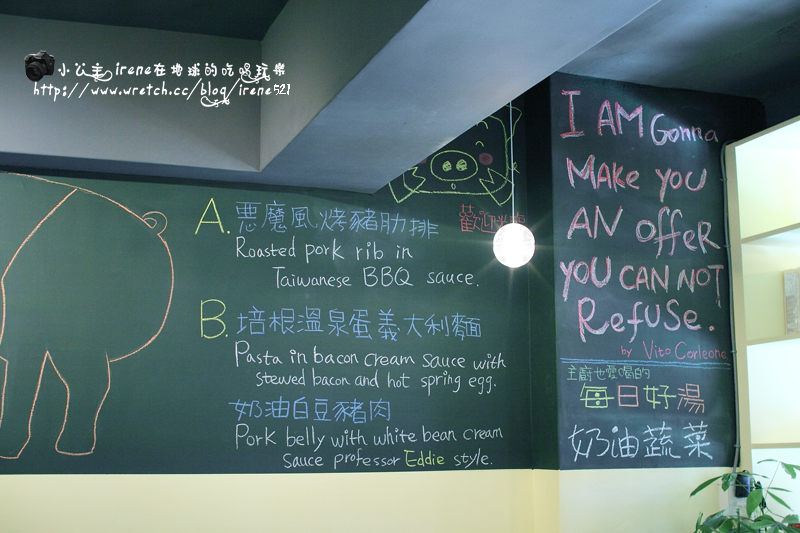 小公主irene在地球的吃喝玩樂
http://www.wretch.cc/blog/irene521
A. 惡魔風烤豬肋排
Roasted pork rib in
Taiwanese BBQ sauce.
B. 培根溫泉蛋義大利麵
Pasta in bacon cream sauce with
stewed bacon and hot spring egg.
奶油白豆豬肉
Pork belly with white bean cream
sauce professor Eddie style.
歡迎
I AM Gonna
MAke you
AN offeR
you CAN NOT
RefuSe.
by Vito Corleone
主廚也愛喝的
每日好湯
奶油蔬菜